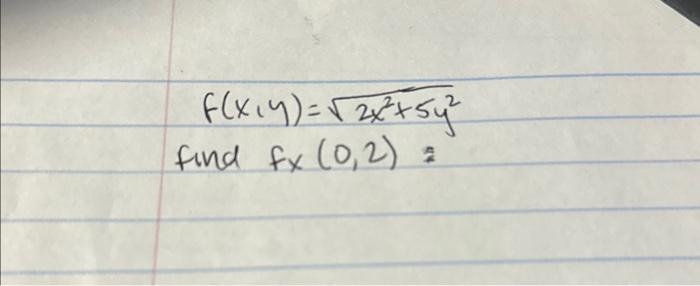 f(x,y)=√2x²+5y²
find fx (0,2) =